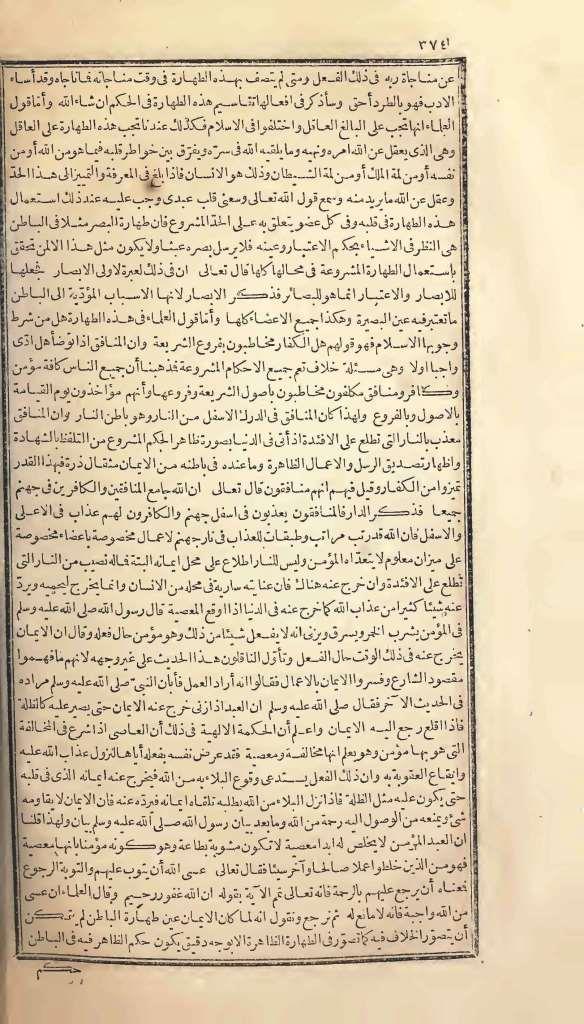 ٣٧٤
عن مناجاة ربه فى ذلك الفعل ومتى لم يتصف بهذه الطهارة فى وقت مناجاته فما ناجاه وقد أساء
الادب فهو بالطرد أحق وسأذكر فى افعالها تقاسيم هذه الطهارة فى الحكم ان شاء الله وأما قول
العلماء انها تجب على البالغ العاقل واختلفوا فى الاسلام فكذلك عندنا تجب هذه الطهارة على العاقل
وهى الذى يعقل عن الله أمره ونهيه وما يلقيه الله فى سره ويفرق بين خواطر قلبه فيما هو من الله أو من
نفسه أو من لمة الملك أو من لمة الشيطان وذلك هو الانسان فاذا بلغ فى المعرفة والتمييز الى هذا الحد
وعقل عن الله ما يريد منه وسمع قول الله تعالى وسعنى قلب عبدى وجب عليه عند ذلك استعمال
هذه الطهارة فى قلبه وفى كل عضو يتعلق به على الحد المشروع فان طهارة البصر مثلا فى الباطن
هى النظر فى الاشياء بحكم الاعتبار وعينه فلا يرسل بصره عبثا ولا يكون مثل هذا الا لمن تحقق
باستعمال الطهارة المشروعة فى محالها كلها قال تعالى ان فى ذلك لعبرة لاولى الابصار فجعلها
للابصار والاعتبار انما هو للبصائر فذكر الابصار لانها الاسباب المؤدية الى الباطن
ما تعتبر فيه عين البصيرة وهكذا جميع الاعضاء كلها وأما قول العلماء فى هذه الطهارة هل من شرط
وجوبها الاسلام فهو قولهم هل الكفار مخاطبون بفروع الشريعة وان المنافق اذا توضأ هل أدى
واجبا أولا وهى مسئلة خلاف تعم جميع الاحكام المشروعة فذهبنا أن جميع الناس كافة مؤمن
وكافر ومنافق مكلفون مخاطبون باصول الشريعة وفروعها وأنهم مؤاخذون يوم القيامة
بالاصول وبالفروع ولهذا كان المنافق فى الدرك الاسفل من النار وهو باطن النار وان المنافق
معذب بالنار التى تطلع على الافئدة اذ أتى فى الدنيا بصورة ظاهر الحكم المشروع من التلفظ بالشهادة
واظهار تصديق الرسل والاعمال الظاهرة وما عنده فى باطنه من الايمان مثقال ذرة فبهذا القدر
تميزوا من الكفار وقيل فيهم انهم منافقون قال تعالى ان الله جامع المنافقين والكافرين فى جهنم
جميعا فذكر الدار فالمنافقون يعذبون فى اسفل جهنم والكافرون لهم عذاب فى الاعلى
والاسفل فان الله قد رتب مراتب وطبقات للعذاب فى نار جهنم لاعمال مخصوصة باعضاء مخصوصة
على ميزان معلوم لا يتعداه المؤمن وليس للنار اطلاع على محل ايمانه البتة فماله نصيب من النار التى
تطلع على الافئدة وان خرج عنه هناك فان عنايته سارية فى محله من الانسان وانما يخرج ليحميه ويرد
عنه شيئا كثيرا من عذاب الله كما خرج عنه فى الدنيا اذا أوقع المعصية قال رسول الله صلى الله عليه وسلم
فى المؤمن يشرب الخمر ويسرق ويزنى انه لا يفعل شيئا من ذلك وهو مؤمن حال فعله وقال ان الايمان
يخرج عنه فى ذلك الوقت حال الفعل وتأول الناقلون هذا الحديث على غير وجهه لانهم ما فهموا
مقصود الشارع وفسروا الايمان بالاعمال فقالوا انه أراد العمل فأبان النبى صلى الله عليه وسلم مراده
فى الحديث الآخر فقال صلى الله عليه وسلم ان العبد اذا زنى خرج عنه الايمان حتى يصير عليه كالظلة
فاذا اقلع رجع اليه الايمان واعلم أن الحكمة الالهية فى ذلك أن العاصى اذا شرع فى المخالفة
التى هو بها مؤمن وهو يعلم انها مخالفة ومعصية فقد عرض نفسه بفعله أياها لنزول عذاب الله عليه
وايقاع العقوبة به وان ذلك الفعل يستدعى وقوع البلاء به من الله فيخرج عنه ايمانه الذى فى قلبه
حتى يكون عليه مثل الظلة فاذا نزل البلاء من الله يطلبه تلقاه ايمانه فيرده عنه فان الايمان لا يقاومه
شئ ويمنعه من الوصول اليه رحمة من الله وما بعد بيان رسول الله صلى الله عليه وسلم بيان ولهذا قلنا
ان العبد المؤمن لا يخلص له ابدا معصية لا تكون مشوبة بطاعة وهو كونه مؤمنا بانها معصية
فهو من الذين خلطوا عملا صالحا وآخر سيئا فقال تعالى عسى الله أن يتوب عليهم والتوبة الرجوع
فمعناه أن يرجع عليهم بالرحمة فانه تعالى تمم الآية بقوله ان الله غفور رحيم وقال العلماء ان عسى
من الله واجبة فانه لا مانع له ثم نرجع ونقول انه لما كان الايمان عين طهارة الباطن لم يتمكن
أن يتصور الخلاف فيه كما تصور فى الطهارة الظاهرة الا بوجه دقيق يكون حكم الظاهر فيه فى الباطن
حكم